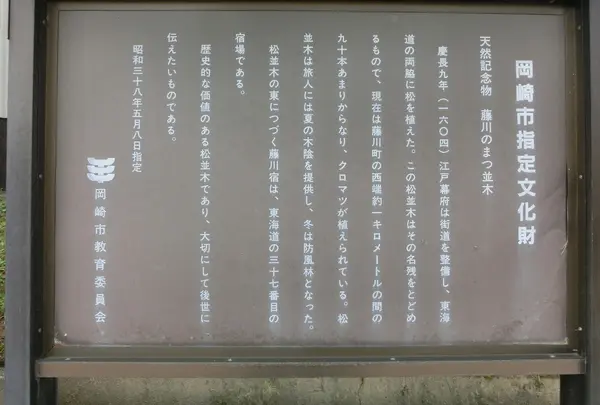 岡崎市指定文化財
天然記念物　藤川のまつ並木
慶長九年（一六〇四）江戸幕府は街道を整備し、東海
道の両脇に松を植えた。この松並木はその名残をとどめ
るもので、現在は藤川町の西端約一キロメートルの間の
九十本あまりからなり、クロマツが植えられている。松
並木は旅人には夏の木陰を提供し、冬は防風林となった。
松並木の東につづく藤川宿は、東海道の三十七番目の
宿場である。
歴史的な価値のある松並木であり、大切にして後世に
伝えたいものである。
昭和三十八年五月八日指定
岡崎市教育委員会